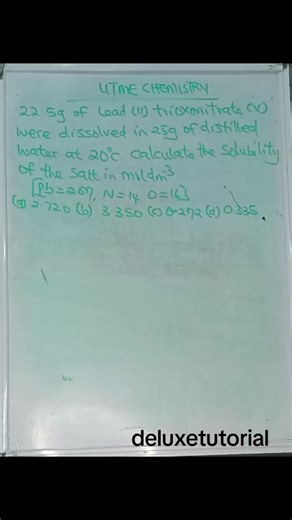 UTME CHEMISTRY
22 5g of Lead (II) trioxonitrate (V)
were dissolved in 25g of distilled
water at 20°c calculate the Solubility
of the salt in mldm⁻³
[Pb=207, N=14 O=16]
(a) 2.720 (b) 3 350 (c) 0.272 (d) 0.335.
deluxetutorial